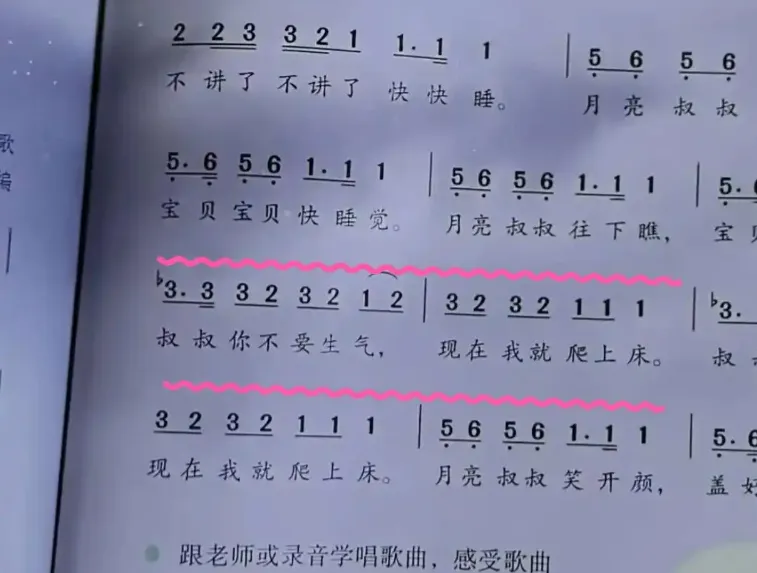 2 2 3 3 2 1 1· 1 1 | 5 6 5 6
不讲了 不讲了 快快睡。 月亮叔叔
歌
5· 6 5 6 1· 1 1 | 5 6 5 6 1· 1 1 | 5·
编
宝贝宝贝快睡觉。 月亮叔叔往下瞧, 宝
♭3· 3 3 2 3 2 1 2 | 3 2 3 2 1 1 1 | ♭3·
叔叔你不要生气, 现在我就爬上床。 叔
3 2 3 2 1 1 1 | 5 6 5 6 1· 1 1 | 5· 6
现在我就爬上床。 月亮叔叔笑开颜, 盖好
跟老师或录音学唱歌曲，感受歌曲